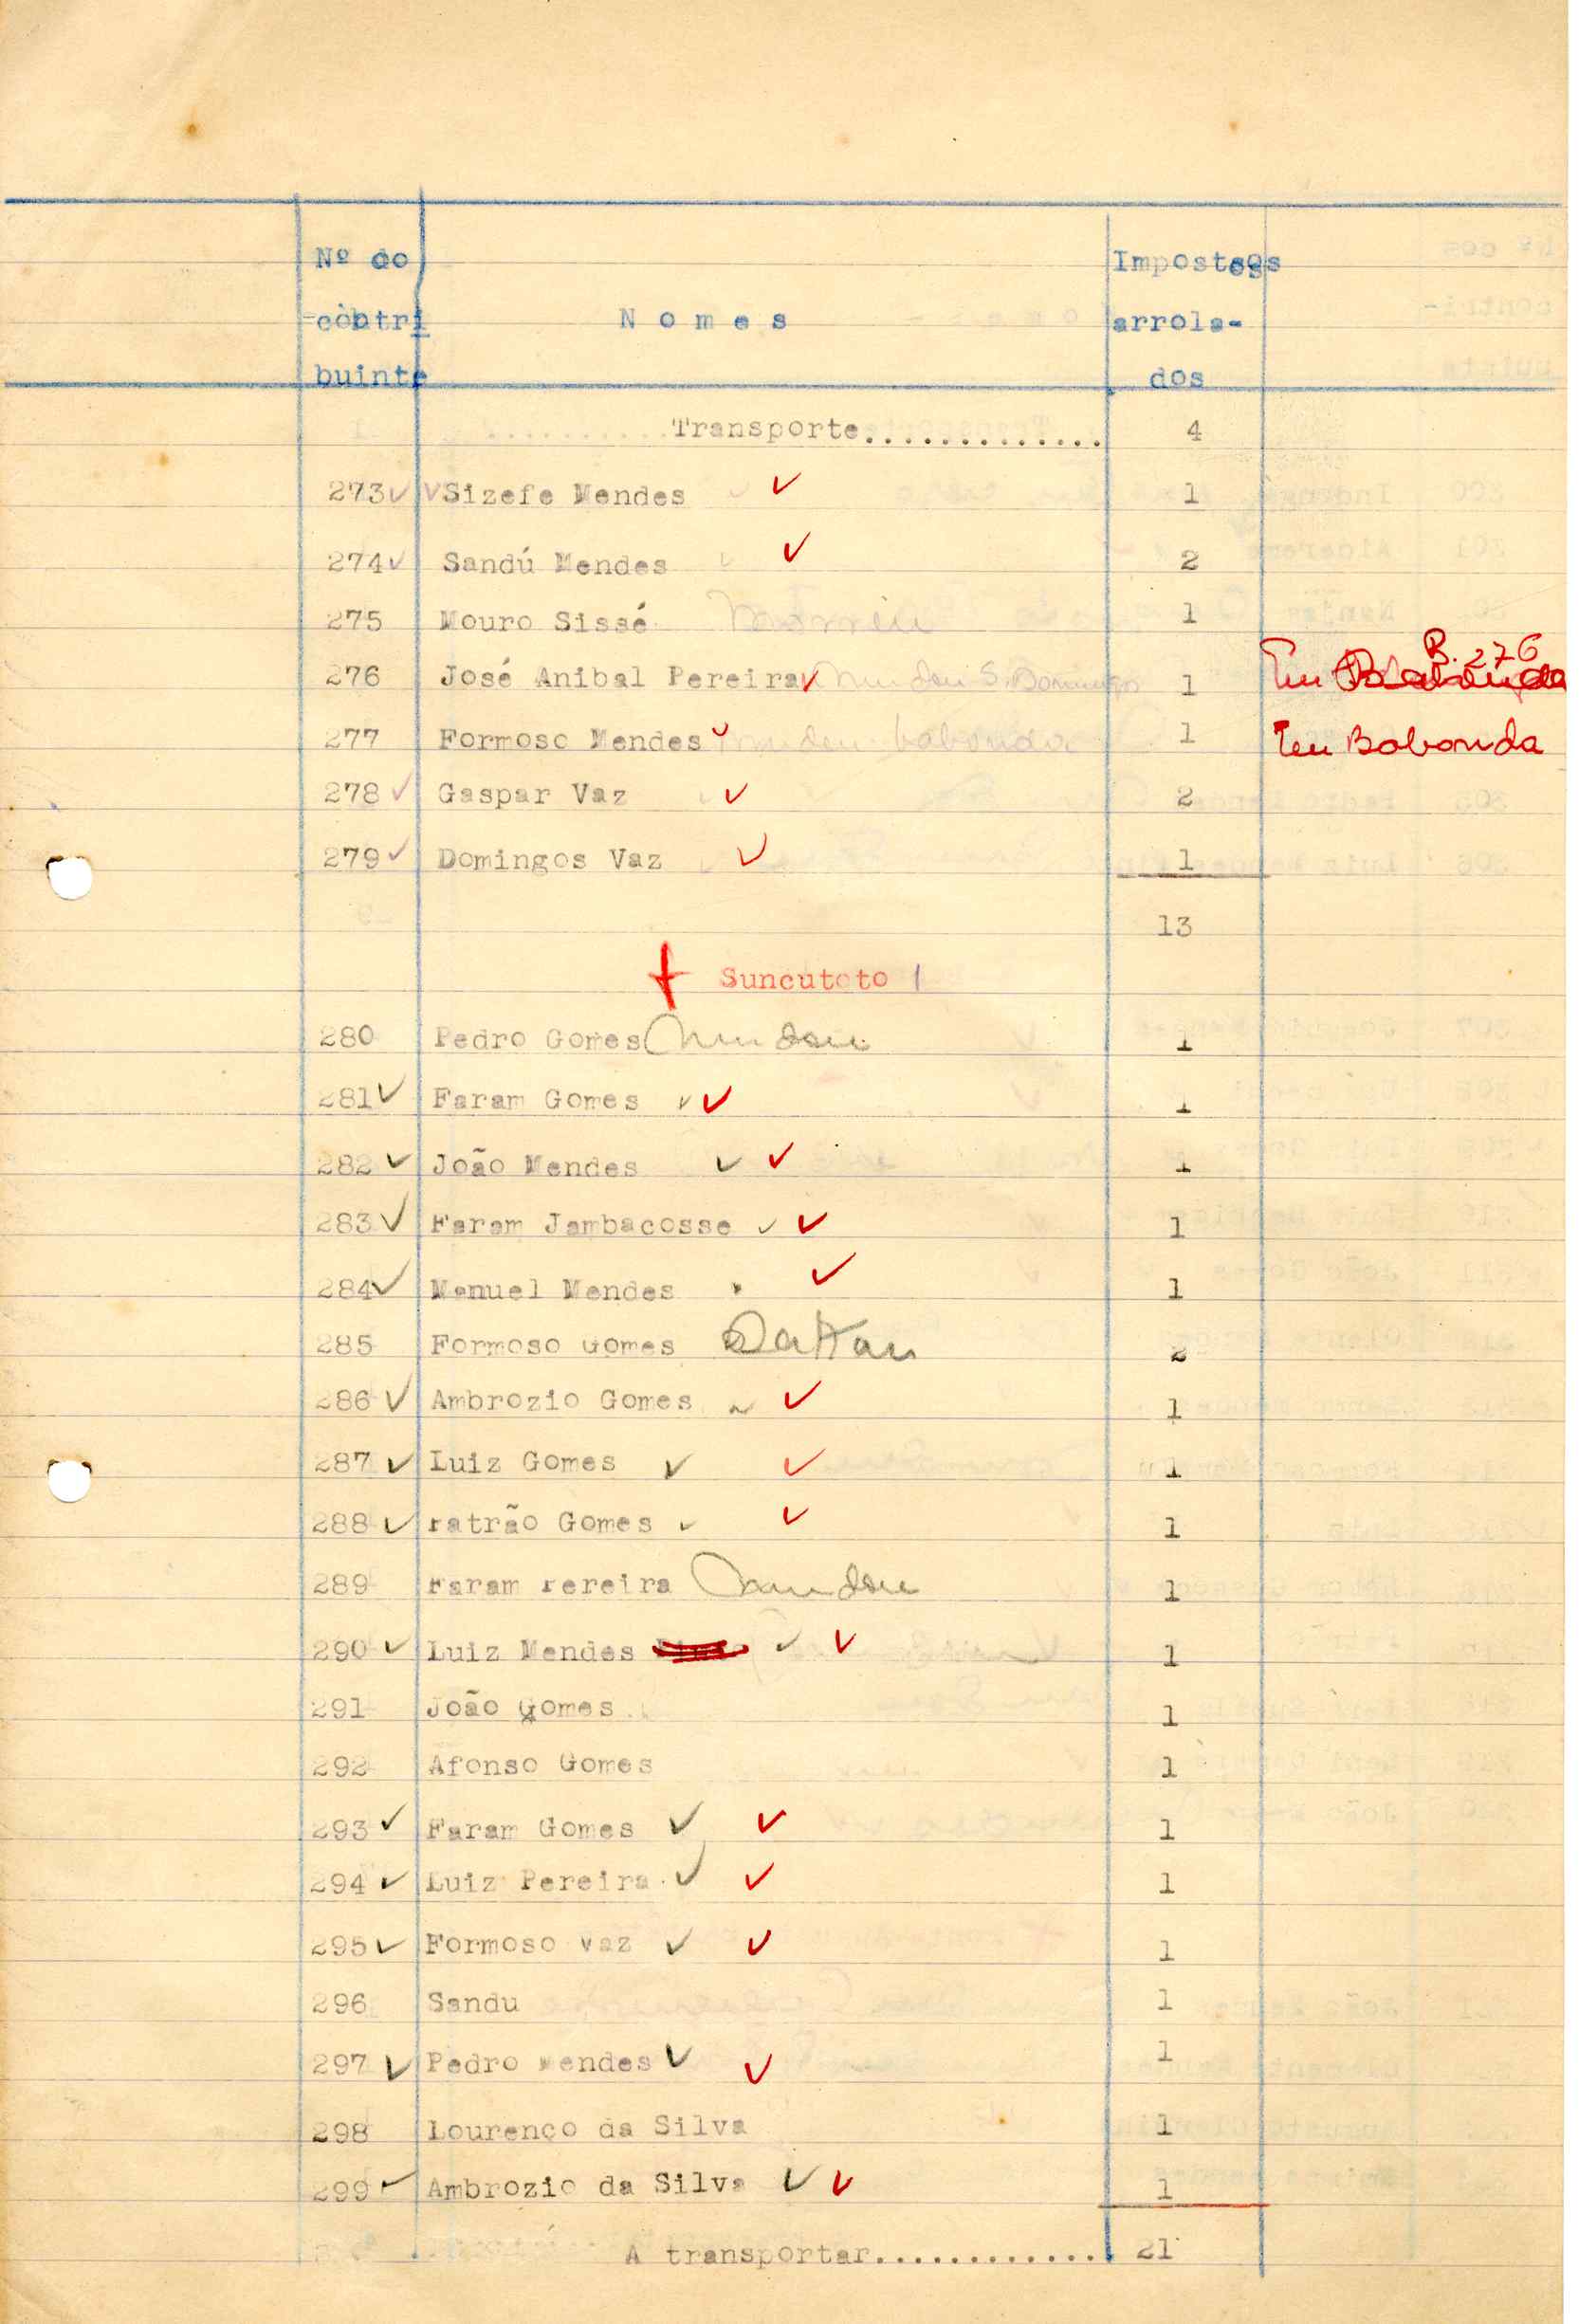 Nº do
contri
buinte
Nomes
Impostos
arrola-
dos
Transporte............. 4
273 ✓ ✓ Sizefe Mendes ✓ 1
274 ✓ Sandú Mendes ✓ 2
275 Mouro Sissé 1
276 José Anibal Pereira ✓ Mudou S. Domingos 1 Em B. 276
277 Formoso Mendes ✓ Mudou babonda 1 Em Babonda
278 ✓ Gaspar Vaz ✓ 2
279 ✓ Domingos Vaz ✓ 1
13
Suncutoto
280 Pedro Gomes Mudou 1
281 ✓ Faram Gomes ✓ ✓ 1
282 ✓ João Mendes ✓ ✓ 1
283 ✓ Faram Jambacosse ✓ ✓ 1
284 ✓ Manuel Mendes ✓ 1
285 Formoso Gomes 2
286 ✓ Ambrozio Gomes ✓ 1
287 ✓ Luiz Gomes ✓ ✓ 1
288 ✓ Patrão Gomes ✓ ✓ 1
289 Faram Pereira Mudou 1
290 ✓ Luiz Mendes ✓ ✓ 1
291 João Gomes 1
292 Afonso Gomes 1
293 ✓ Faram Gomes ✓ ✓ 1
294 ✓ Luiz Pereira ✓ ✓ 1
295 ✓ Formoso Vaz ✓ ✓ 1
296 Sandu 1
297 ✓ Pedro Mendes ✓ ✓ 1
298 Lourenço da Silva 1
299 ✓ Ambrozio da Silva ✓ ✓ 1
A transportar............. 21